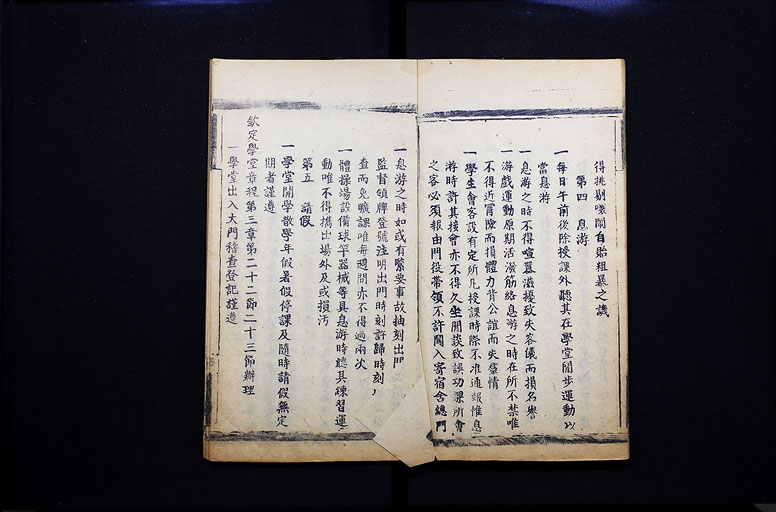 得挑剔嚷鬧自貽粗暴之譏
第四　息游
一每日午前後除授課外聽其在學堂閒步運動以
當息游
一息游之時不得喧囂滋擾致失容儀而損名譽
一游戲運動原期活潑筋絡息游之時在所不禁唯
不得近冒險而損體力背公誼而失羣情
一學生會客設有定所凡授課時際不准通報惟息
游時許其接會亦不得久坐閒談致誤功課所會
之客必須報由門役帶領不許闖入寄宿舍總門
一息游之時如或有緊要事故抽刻出門
監督領牌登號注明出門時刻許歸時刻
查而免曠課唯每週間亦不得過兩次
一體操場設備球竿器械等具息游時聽其練習運
動唯不得攜出場外及或損汚
第五　請假
一學堂開學散學年假暑假停課及隨時請假無定
期者謹遵
欽定學堂章程第三章第二十二節二十三節辦理
一學堂出入大門稽查登記謹遵